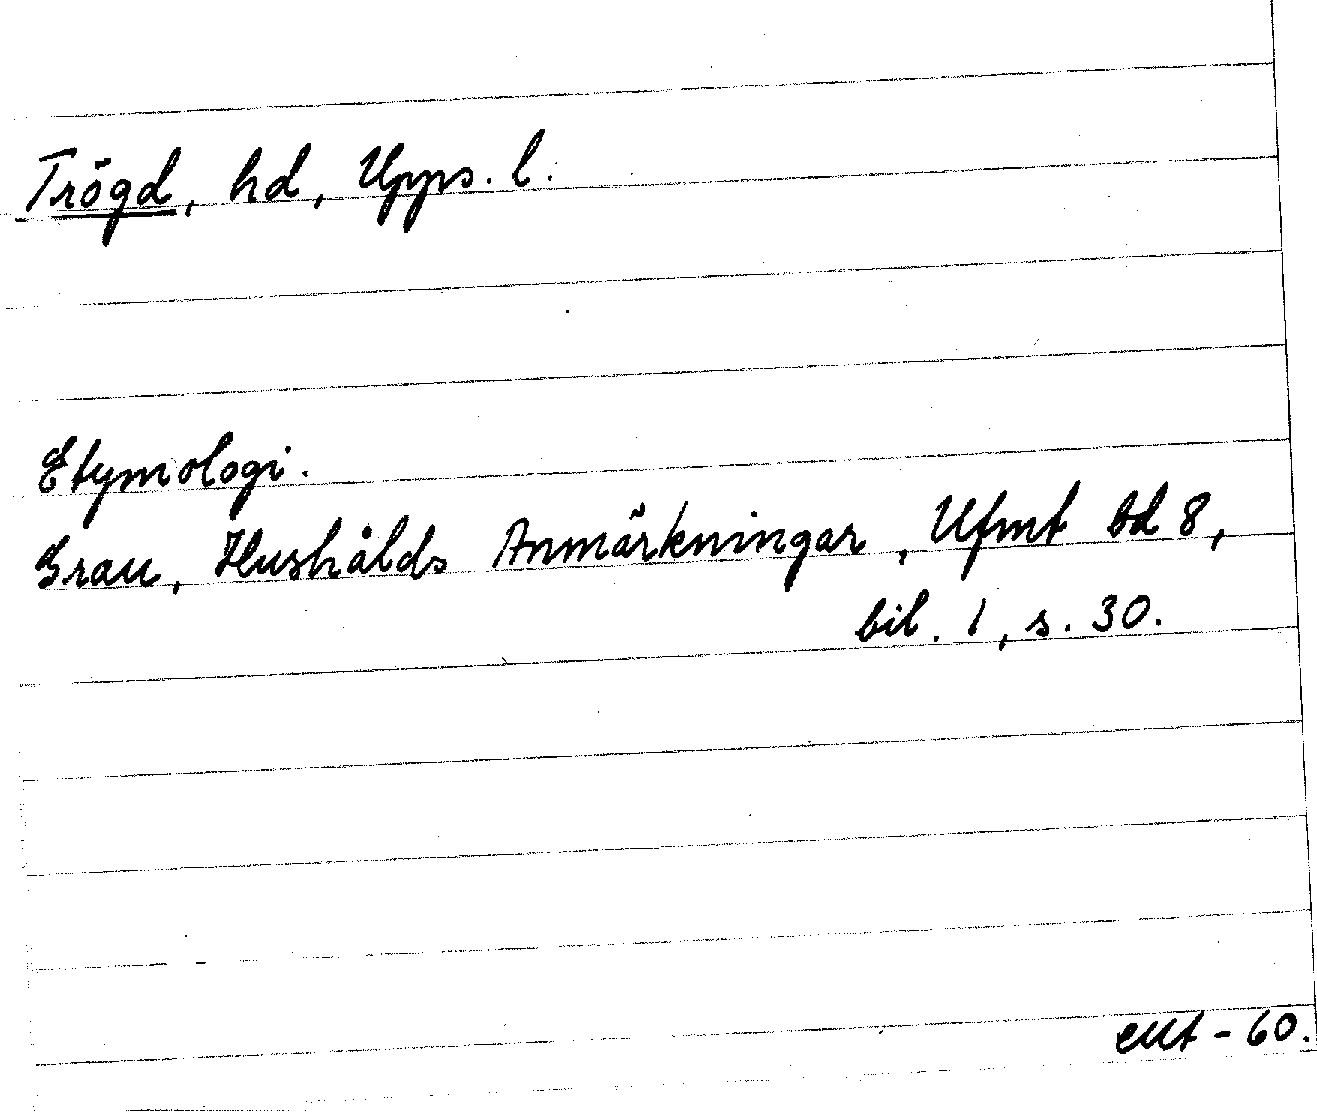 Trögd, hd, Upps. l.
Etymologi.
Grau, Hushålds Anmärkningar, Ufmt bd 8,
bil. 1, s. 30.
-60.